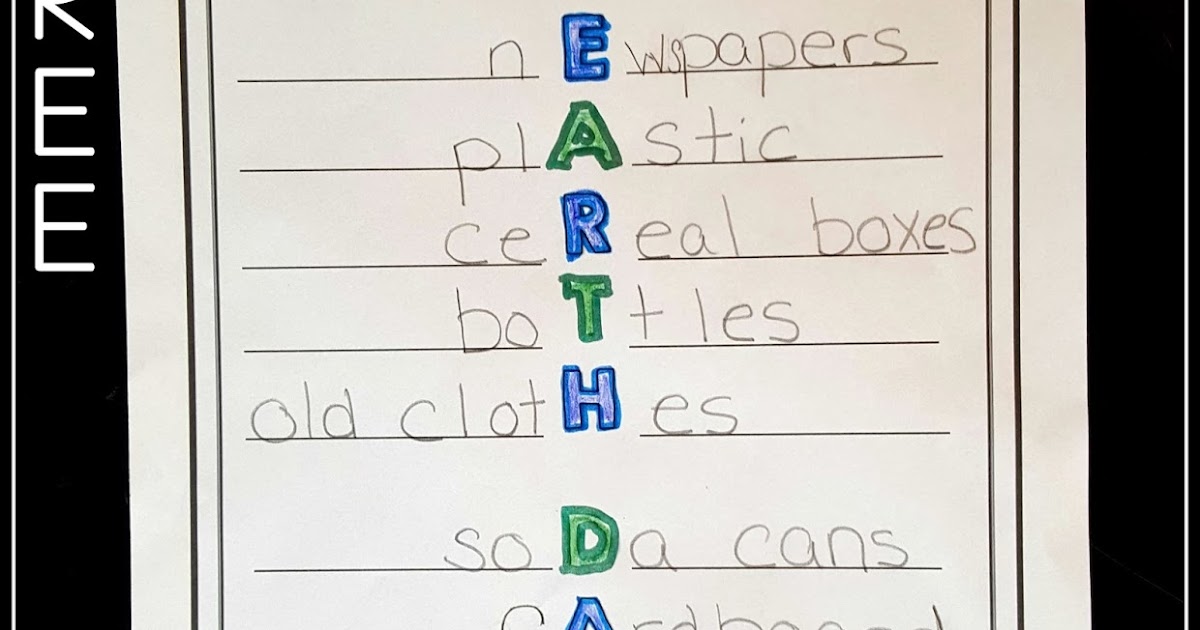 KEE
nEwspapers
plAstic
ceReal boxes
boTtles
old clotHes
soDa cans
cArdboard